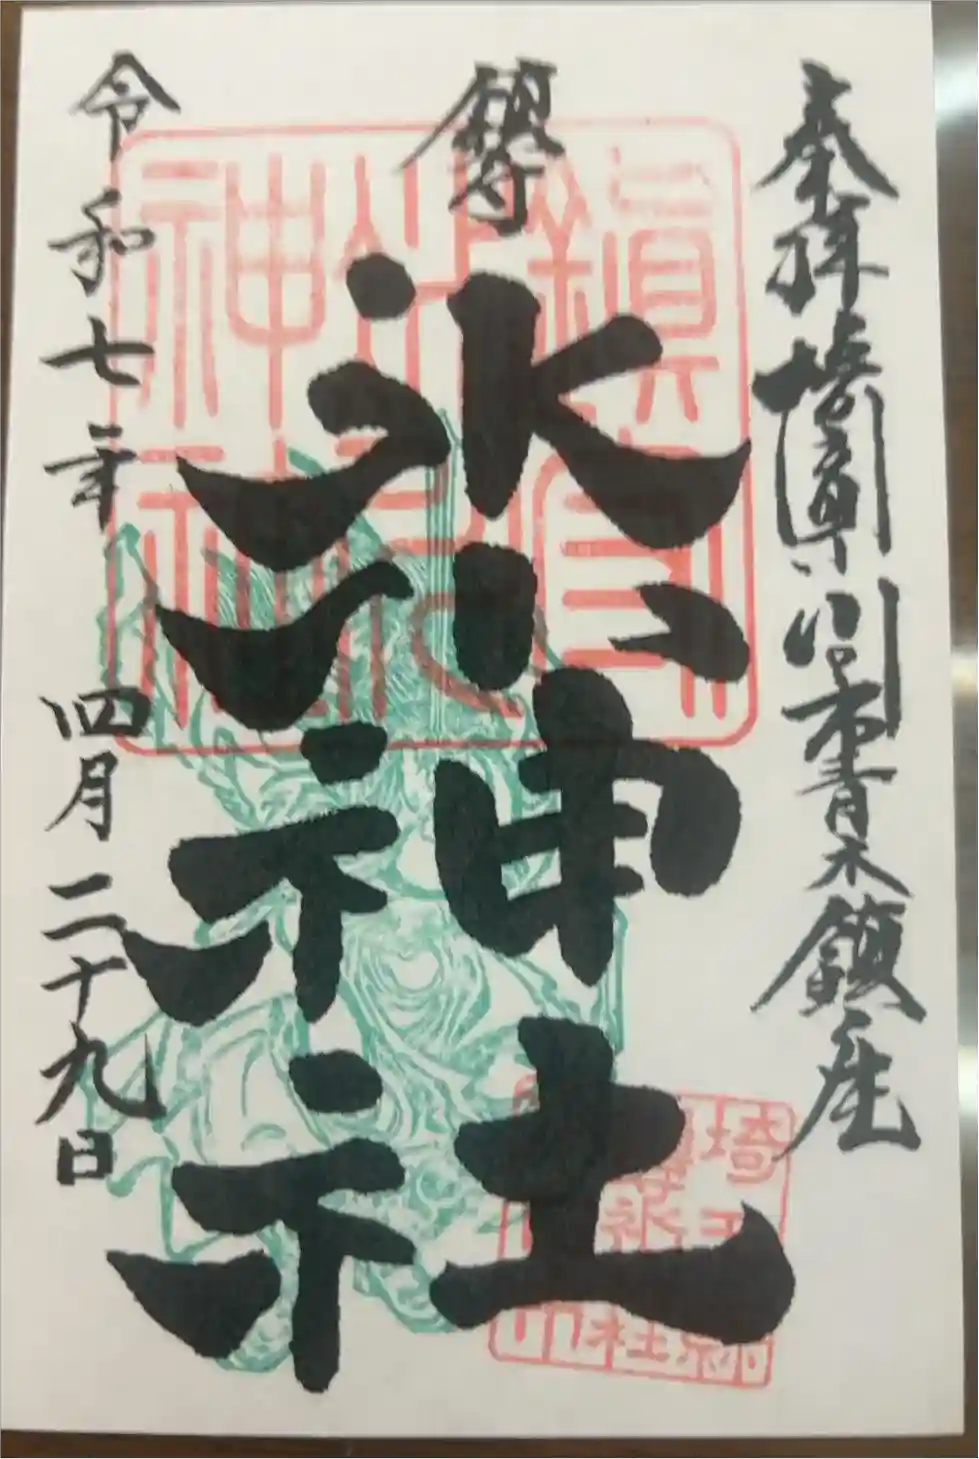 奉拝 埼玉県川口市青木鎮座
鎮守
氷川神社
令和七年 四月二十九日
鎮守
氷川
神社